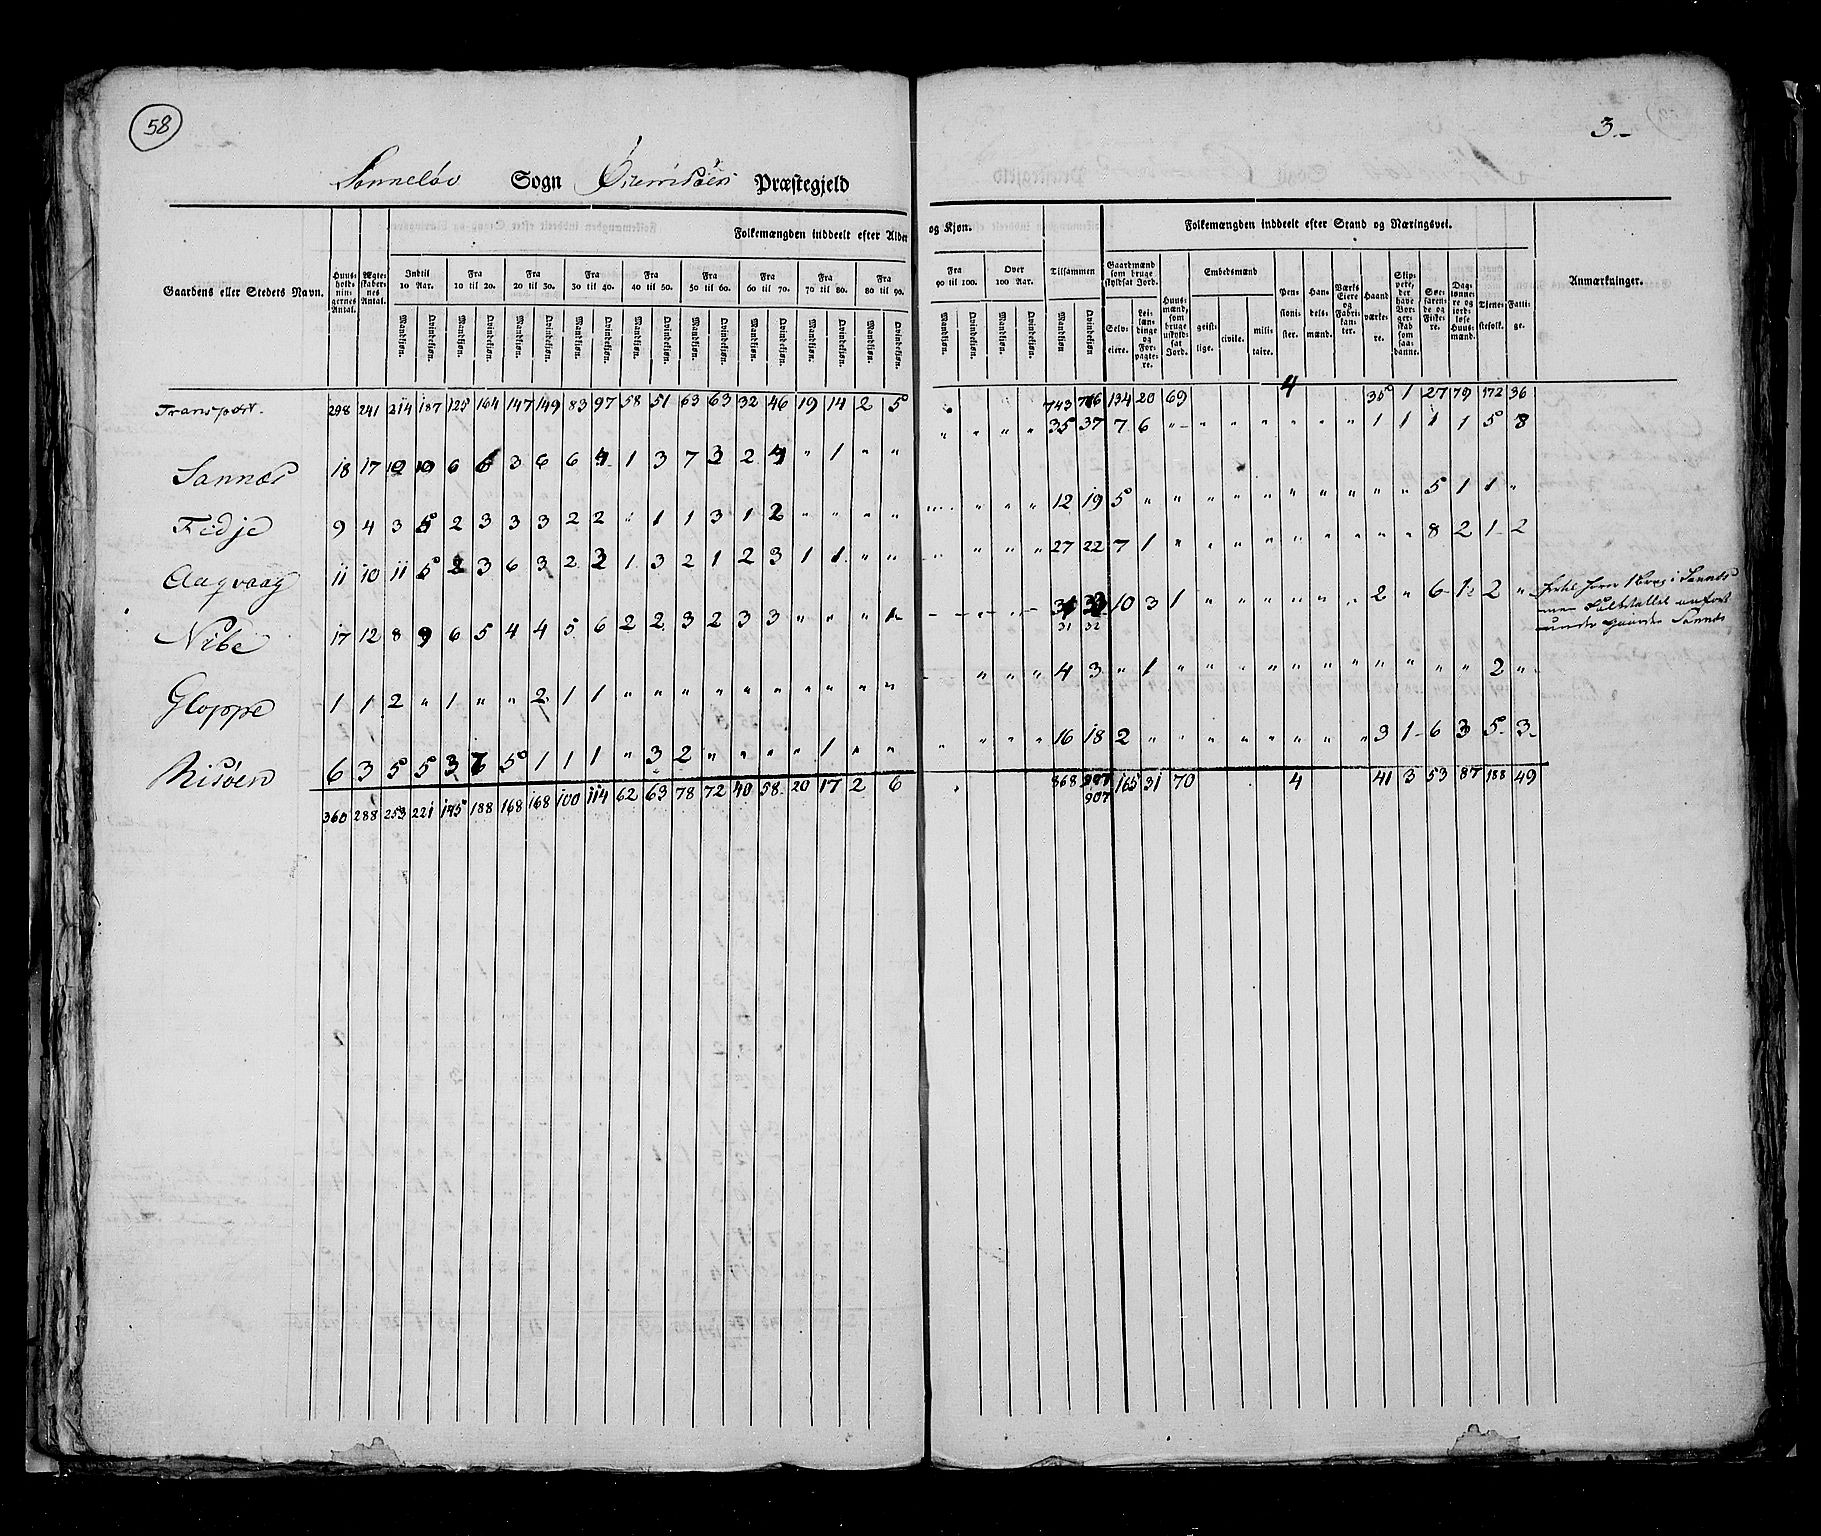 58
3.-
Sanneløv Sogn Præstegjeld
Folkemængden inddeelt efter Alder og Kjøn. Folkemængden inddeelt efter Stand og Næringsvei.
Gaardens eller Stedets Navn. Huusholdningernes Antal. Ægteskabernes Antal. Indtil 10 Aar. Fra 10 til 20. Fra 20 til 30. Fra 30 til 40. Fra 40 til 50. Fra 50 til 60. Fra 60 til 70. Fra 70 til 80. Fra 80 til 90. Fra 90 til 100. Over 100 Aar. Tilsammen Gaardmænd som bruge skyldsat Jord. Huusmænd, som bruge uskyldsat Jord. Embedsmænd Pensionister. Handelsmænd. Værks Eiere og Fabrikanter. Haandværkere. Skippere, der have Borgerskab som saadanne. Søefarende og Fiskere. Daglønnere og jordløse Huusmænd. Tjenestefolk. Fattige. Anmærkninger.
Mandkjøn. Qvindekjøn. Mandkjøn. Qvindekjøn. Mandkjøn. Qvindekjøn. Mandkjøn. Qvindekjøn. Mandkjøn. Qvindekjøn. Mandkjøn. Qvindekjøn. Mandkjøn. Qvindekjøn. Mandkjøn. Qvindekjøn. Mandkjøn. Qvindekjøn. Mandkjøn. Qvindekjøn. Mandkjøn. Qvindekjøn. Mandkjøn Qvindekjøn. Selveiere. Leilændinge og Forpagtere. geistlige. civile. militaire.
Transport. 298 241 214 187 125 164 147 149 83 97 58 51 63 63 32 46 19 14 2 5 743 776 134 20 69 4 35 1 27 79 172 36
Sannæs 18 17 10 10 6 6 3 6 6 4 1 3 7 3 2 4 " 1 " " " " " " 35 37 7 6 " " " " " " " " 1 1 1 1 5 8
Fedje 9 4 3 5 2 3 3 3 2 2 " 1 1 3 1 2 " " " " " " " " 12 19 5 " " " " " " " " " " " 5 1 1 "
Aaqvaag 11 10 11 5 2 3 6 3 2 2 1 3 2 1 2 3 1 1 " " " " " " 27 22 7 1 " " " " " " " " " " 8 2 1 2
Nibe 17 12 8 9 6 5 4 4 5 6 2 2 3 2 3 3 " " " 1 " " " " 31 32 10 3 1 " " " " " " " 2 " 6 1 2 "
31 32
under gaarden Sannæs
Gloppe 1 1 2 " 1 " " 2 1 1 " " " " " " " " " " " " " " 4 3 " 1 " " " " " " " " " " " " 2 "
Risøen 6 3 5 5 3 6 5 1 1 1 " 3 2 " " " " 1 " " " " " " 16 18 2 " " " " " " " " " 3 1 6 3 5 3
360 288 253 221 145 188 168 168 100 114 62 63 78 72 40 58 20 17 2 6 868 907 165 31 70 4 41 3 53 87 188 49
907